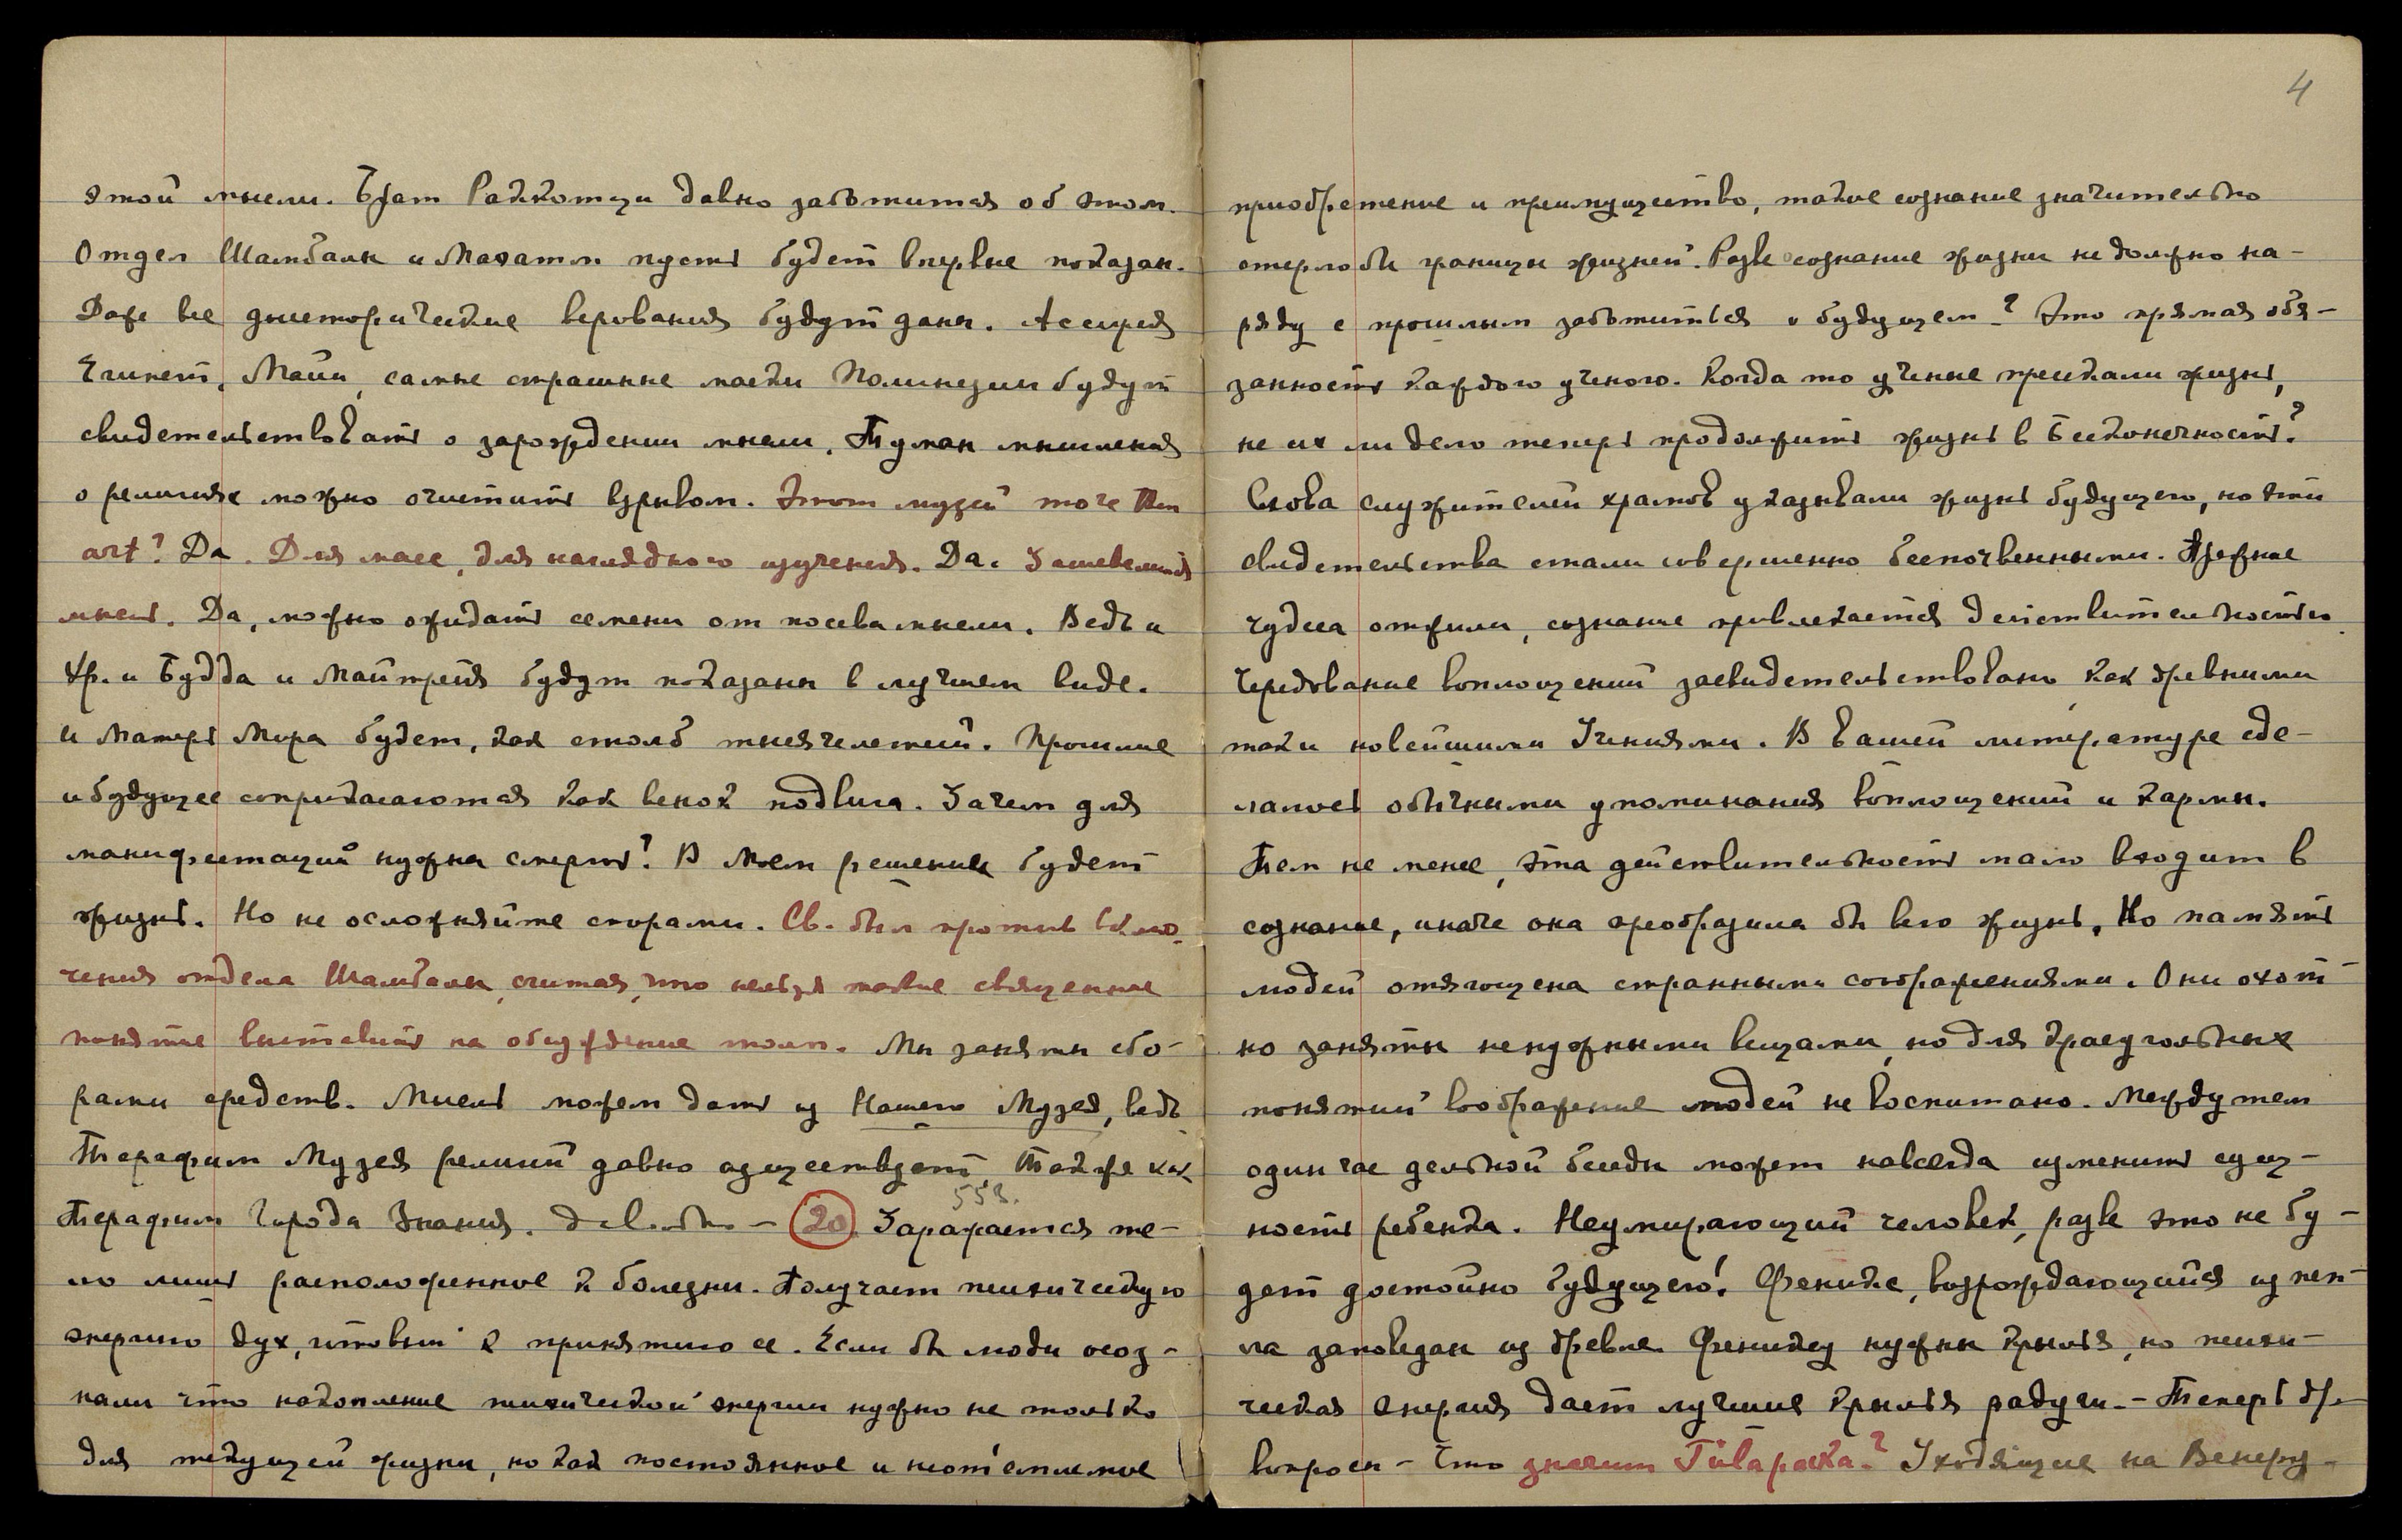 этой мысли. Брат Раккотци давно заботится об этом.
Отдел Шамбалы и Махатм пусть будет впервые показан.
Даже все доисторические верования будут даны. Ассирия
Египет, Майи, самые страшные маски Полинезии будут
свидетельствовать о зарождении мысли. Туман мышления
о религиях можно очистить взрывом. Этот музей тоже при
art? Да. Для масс, для наглядного изучения. Да. Зашевелится
мысль. Да, можно ожидать семени от посева мысли. Ведь и
Хр. и Будда и Майтрейя будут показаны в лучшем виде.
и Матерь Мира будет, как столб тысячелетий. Прошлые
и будущее соприкасаются как венок подвига. Зачем для
манифестаций нужна смерть? В Моем решении будет
жизнь. Но не осложняйте спорами. Св. был против вклю-
чения отдела Шамбалы, считая, что нельзя такие священные
понятие выставить на обсуждение толп. Мы заняты сбо-
рами средств. Мысль можем дать из Нашего Музея, ведь
Терафим Музея религий давно существует, также как
Терафим Города Знания. Довольно – 20 558. Заражается те-
ло лишь расположенное к болезни. Получает психическую
энергию дух, готовый к принятию ее. Если бы люди осоз-
нали что накопление психической энергии нужно не только
для текущей жизни, но как постоянное и неот'емлемое
4
приобретение и преимущество, такое сознание значительно
стерло бы границы жизней. Разве сознание жизни не должно на-
ряду с прошлым заботиться о будущем? Это прямая обя-
занность каждого ученого. Когда то ученые пресекали жизнь,
не их ли дело теперь продолжить жизнь в Бесконечность?
Слова служителей храмов указывали жизнь будущего, но эти
свидетельства стали совершенно беспочвенными. Прежние
чудеса отжили, сознание привлекается действительностью.
Чередование воплощений засвидетельствовано, как древними
так и новейшими Учениями. В вашей литературе сде-
лались обычными упоминания воплощений и кармы.
Тем не менее, эта действительность мало входит в
сознание, иначе она преобразила бы всю жизнь. Но память
людей отягощена странными соображениями. Они охот-
но заняты ненужными вещами, но для краеугольных
понятий воображение людей не воспитано. Между тем
один час дельной беседы может навсегда изменить сущ-
ность ребенка. Неумирающий человек, разве это не бу-
дет достойно будущего! Феникс, возрождающийся из пеп-
ла заповедан из древле. Фениксу нужны крылья, но психи-
ческая энергия дает лучшие крылья радуги. – Теперь др.
вопросы – Что значит Tivaраска? Уходящие на Венеру